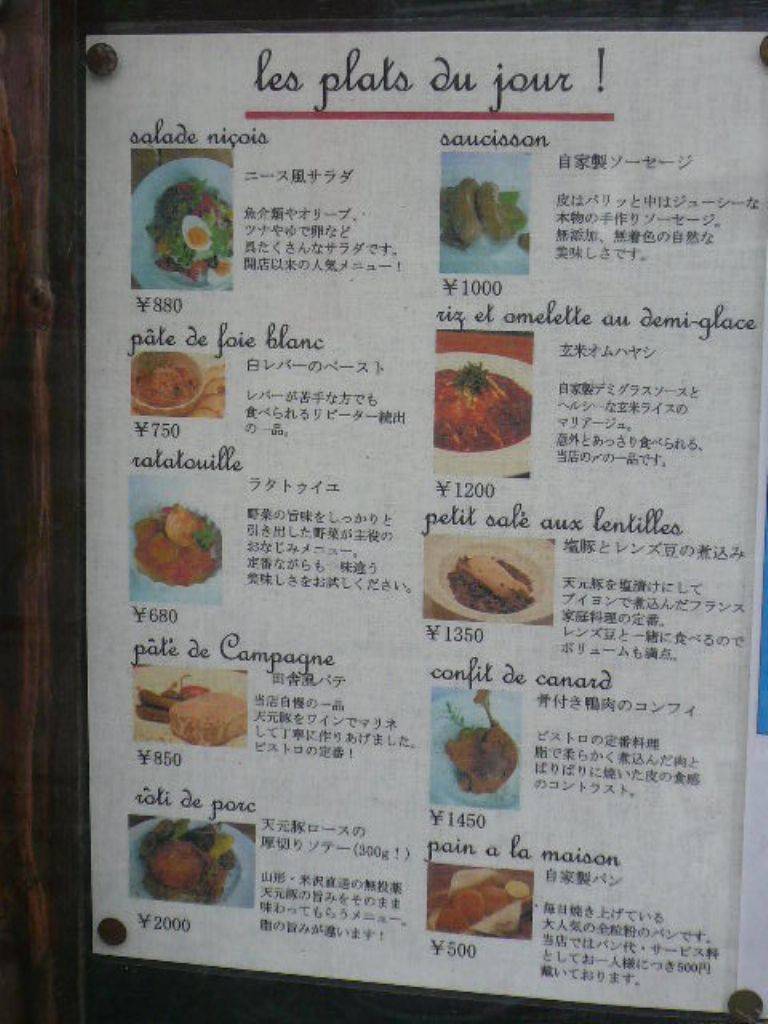 les plats du jour !
salade niçois
ニース風サラダ
魚介類やオリーブ、
ツナやゆで卵など
具たくさんなサラダです。
開店以来の人気メニュー!
¥880
pâte de foie blanc
白レバーのペースト
レバーが苦手な方でも
食べられるリピーター続出
の一品。
¥750
ratatouille
ラタトゥイユ
野菜の旨味をしっかりと
引き出した野菜が主役の
おなじみメニュー。
定番ながらも一味違う
美味しさをお試しください。
¥680
pâté de Campagne
田舎風パテ
当店自慢の一品
天元豚をワインでマリネ
して丁寧に作りあげました。
ビストロの定番!
¥850
rôti de porc
天元豚ロースの
厚切りソテー(300g!)
山形・米沢直送の無投薬
天元豚の旨みをそのまま
味わってもらうメニュー。
脂の旨みが違います!
¥2000
saucisson
自家製ソーセージ
皮はパリッと中はジューシーな
本物の手作りソーセージ。
無添加、無着色の自然な
美味しさです。
¥1000
riz et omelette au demi-glace
玄米オムハヤシ
自家製デミグラスソースと
ヘルシーな玄米ライスの
マリアージュ。
意外とあっさり食べられる、
当店の〆の一品です。
¥1200
petit salé aux lentilles
塩豚とレンズ豆の煮込み
天元豚を塩漬けにして
ブイヨンで煮込んだフランス
家庭料理の定番。
レンズ豆と一緒に食べるので
ボリュームも満点。
¥1350
confit de canard
骨付き鴨肉のコンフィ
ビストロの定番料理
脂で柔らかく煮込んだ肉と
ぱりぱりに焼いた皮の食感
のコントラスト。
¥1450
pain a la maison
自家製パン
毎日焼き上げている
大人気の全粒粉のパンです。
当店ではパン代・サービス料
としてお一人様につき500円
戴いております。
¥500